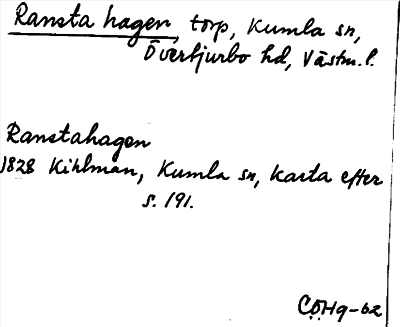 Ransta hagen, torp, Kumla sn,
Övertjurbo hd, Västm. l.
Ranstahagen
1828 Kihlman, Kumla sn, karta efter
s. 191.
CÖHg-62